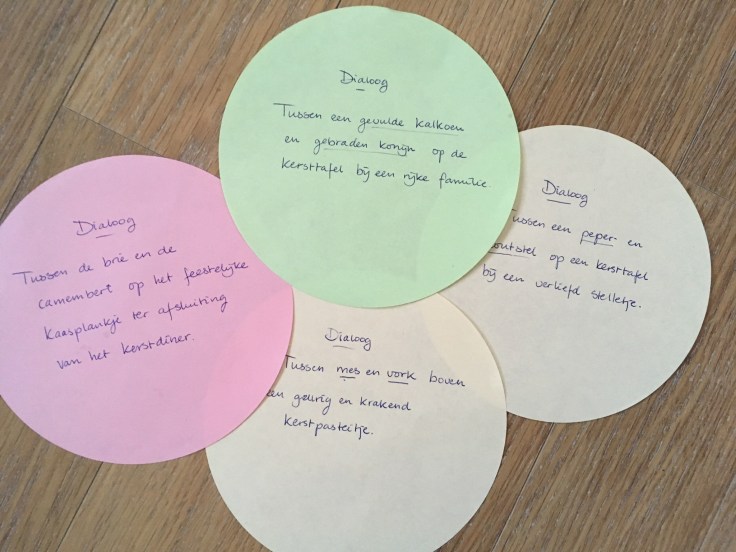 Dialoog
Tussen een gevulde kalkoen
en gebraden konijn op de
kersttafel bij een rijke familie.
Dialoog
Tussen een peper- en
zoutstel op een kersttafel
bij een verliefd stelletje.
Dialoog
Tussen de brie en de
camembert op het feestelijke
kaasplankje ter afsluiting
van het kerstdiner.
Dialoog
Tussen mes en vork boven
een geurig en krakend
kerstpasteitje.